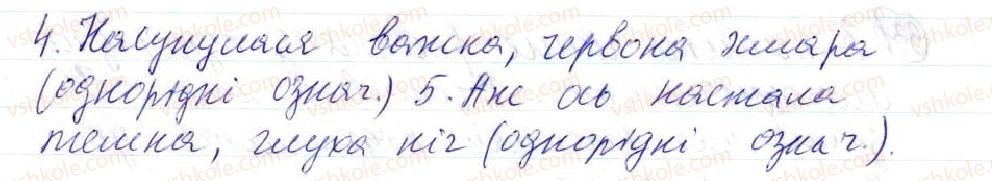 4. Насунулася важка, червона хмара
(однорідні означ.) 5. Аж ось настала
темна, глуха ніч (однорідні означ.).